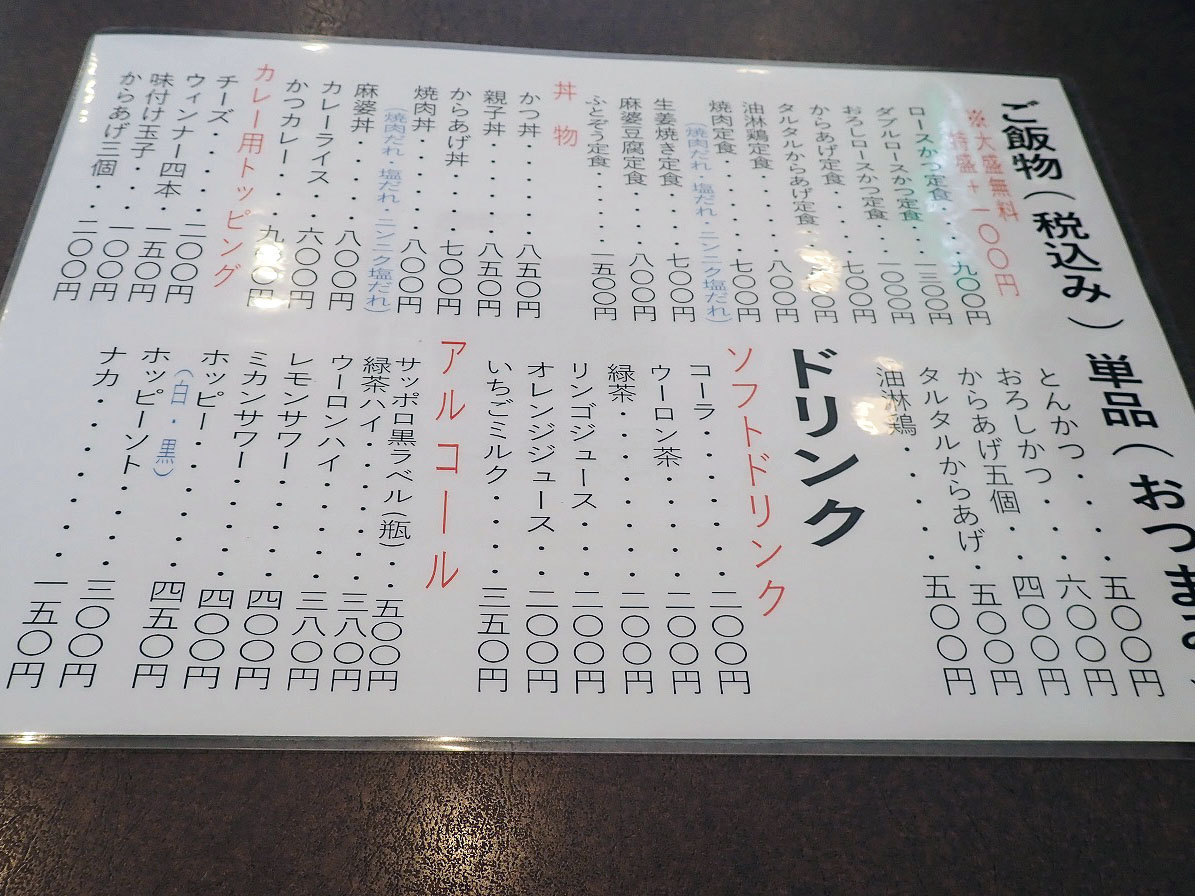 ご飯物(税込み)
※大盛無料
特盛+一〇〇円
ロースかつ定食・・・九〇〇円
ダブルロースかつ定食・一三〇〇円
おろしロースかつ定食・・一〇〇〇円
からあげ定食・・・・七〇〇円
タルタルからあげ定食・・〇〇円
油淋鶏定食・・・・・八〇〇円
焼肉定食・・・・・・七〇〇円
(焼肉だれ・塩だれ・ニンニク塩だれ)
生姜焼き定食・・・・七〇〇円
麻婆豆腐定食・・・・八〇〇円
ふとぞう定食・・・・一五〇〇円
丼物
かつ丼・・・・・・八五〇円
親子丼・・・・・・八五〇円
からあげ丼・・・・七〇〇円
焼肉丼・・・・・・八〇〇円
(焼肉だれ・塩だれ・ニンニク塩だれ)
麻婆丼・・・・・・八〇〇円
カレーライス・・・六〇〇円
かつカレー・・・・九〇〇円
カレー用トッピング
チーズ・・・・・・二〇〇円
ウィンナー四本・・一五〇円
味付け玉子・・・・一〇〇円
からあげ三個・・・二〇〇円
単品(おつまみ
とんかつ・・・・五〇〇円
おろしかつ・・・六〇〇円
からあげ五個・・四〇〇円
タルタルからあげ・五〇〇円
油淋鶏・・・・・五〇〇円
ドリンク
ソフトドリンク
コーラ・・・・・二〇〇円
ウーロン茶・・・二〇〇円
緑茶・・・・・・二〇〇円
リンゴジュース・・・二〇〇円
オレンジジュース・・二〇〇円
いちごミルク・・・三五〇円
アルコール
サッポロ黒ラベル(瓶)・・五〇〇円
緑茶ハイ・・・・・三八〇円
ウーロンハイ・・・三八〇円
レモンサワー・・・四〇〇円
ミカンサワー・・・四〇〇円
ホッピー・・・・・四五〇円
(白・黒)
ホッピーソト・・・三〇〇円
ナカ・・・・・・・一五〇円